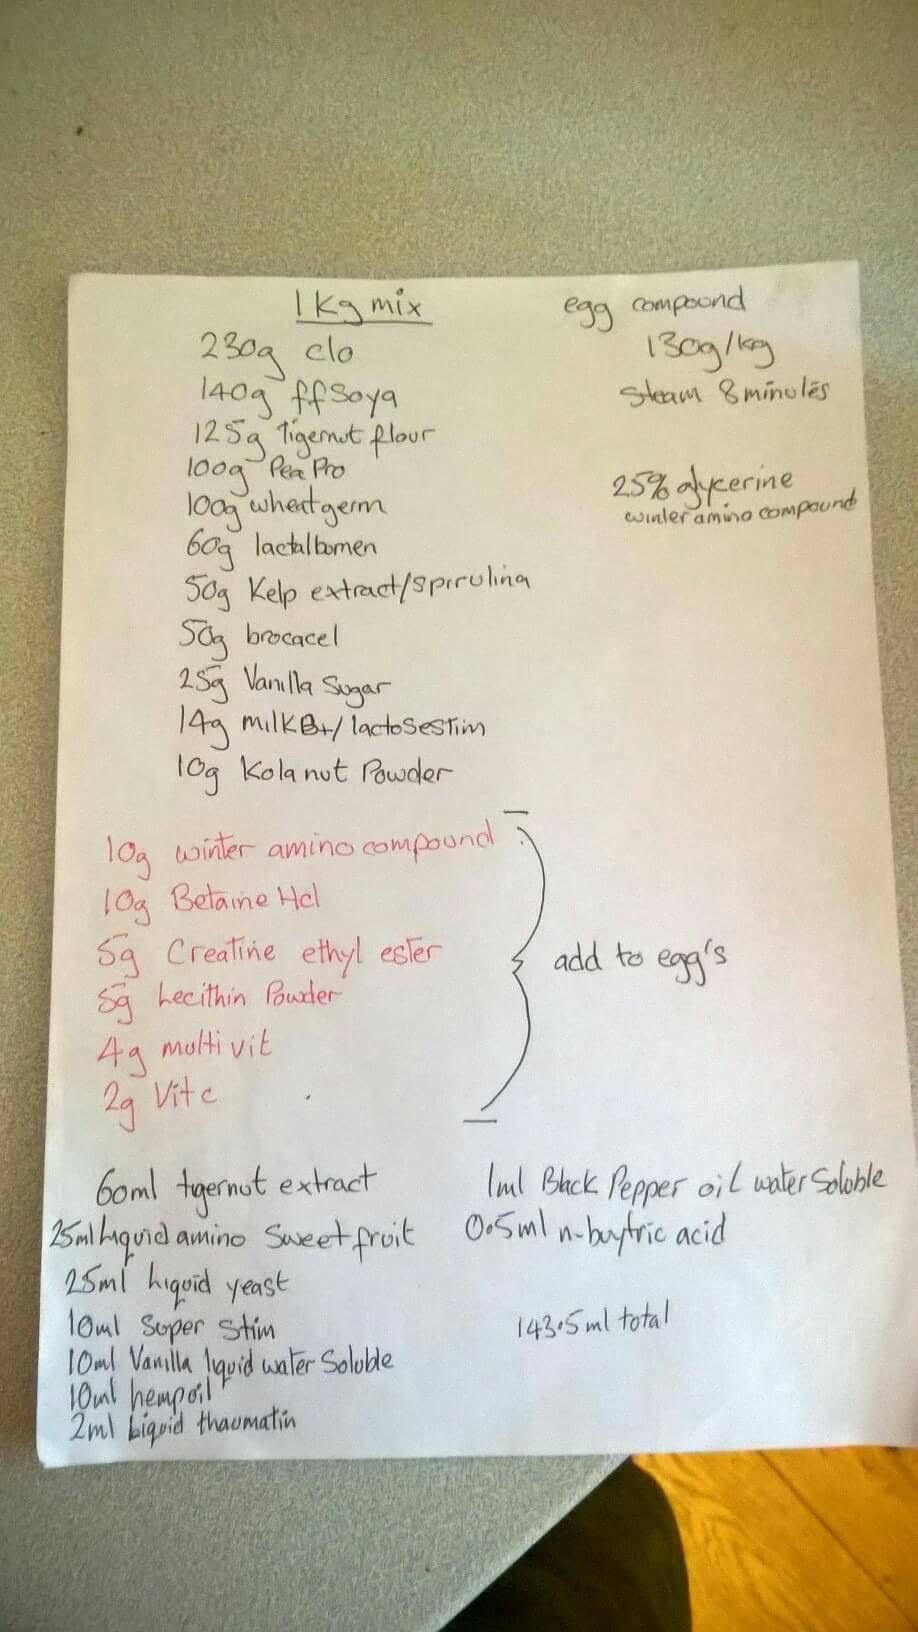 1Kg mix
230g clo
140g ffSoya
125g Tigernut flour
100g Pea Pro
100g wheatgerm
60g lactalbomen
50g Kelp extract/spirulina
50g brocacel
25g Vanilla Sugar
14g milkB+/lactosestim
10g Kola nut Powder
egg compound
130g/kg
Steam 8 minutes
25% glycerine
winter amino compound
10g winter amino compound
10g Betaine Hcl
5g Creatine ethyl ester
5g Lecithin Powder
4g multi vit
2g Vit c
add to egg's
60ml tigernut extract
25ml Liquid amino Sweet fruit
25ml Liquid yeast
10ml Super Stim
10ml Vanilla liquid water Soluble
10ml hempoil
2ml Liquid thaumatin
1ml Black Pepper oil water Soluble
0.5ml n-buytric acid
143.5ml total